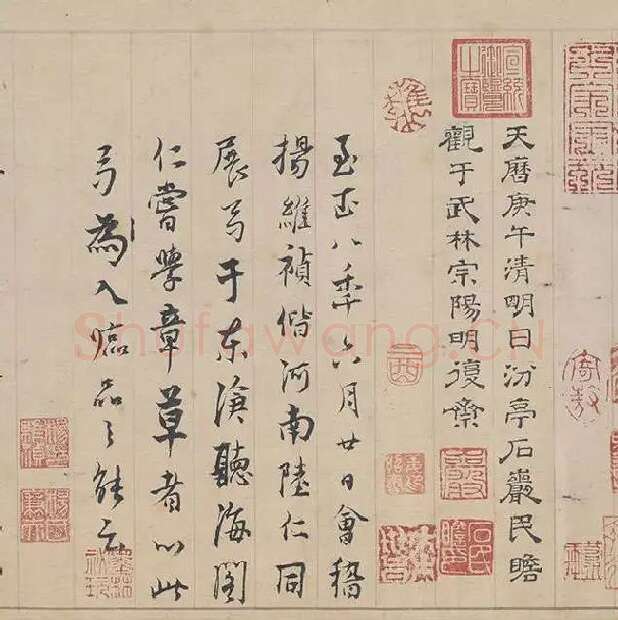 天曆庚午清明日汾亭石巖民瞻
觀于武林宗陽明復齋
至正八年六月廿日會稽
楊維禎偕河南陸仁同
展卷于東滄聽海閣
仁嘗學章草者以此
卷為入臨品之能云
Shufawang.CN